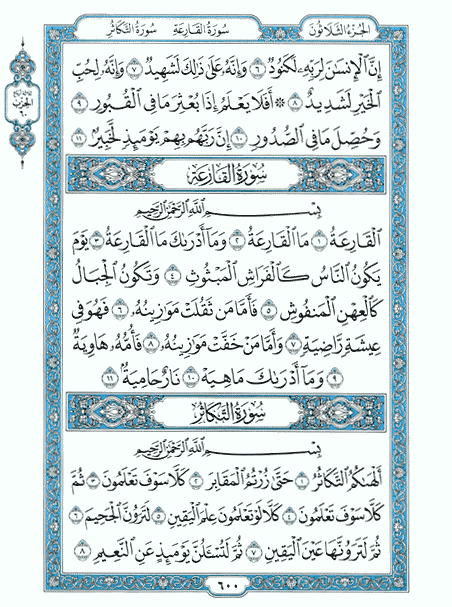 سُورَةُ القَارِعَةِ سُورَةُ التَّكَاثُرِ
الجُزْءُ الثَّلَاثُونَ
إِنَّ ٱلْإِنسَٰنَ لِرَبِّهِۦ لَكَنُودٌ ٦ وَإِنَّهُۥ عَلَىٰ ذَٰلِكَ لَشَهِيدٌ ٧ وَإِنَّهُۥ لِحُبِّ
ٱلْخَيْرِ لَشَدِيدٌ ٨ ۞ أَفَلَا يَعْلَمُ إِذَا بُعْثِرَ مَا فِى ٱلْقُبُورِ ٩
وَحُصِّلَ مَا فِى ٱلصُّدُورِ ١٠ إِنَّ رَبَّهُم بِهِمْ يَوْمَئِذٍ لَّخَبِيرٌۢ ١١
الحِزْب
٦٠
سُورَةُ القَارِعَةِ
بِسْمِ ٱللَّهِ ٱلرَّحْمَٰنِ ٱلرَّحِيمِ
ٱلْقَارِعَةُ ١ مَا ٱلْقَارِعَةُ ٢ وَمَآ أَدْرَىٰكَ مَا ٱلْقَارِعَةُ ٣ يَوْمَ
يَكُونُ ٱلنَّاسُ كَٱلْفَرَاشِ ٱلْمَبْثُوثِ ٤ وَتَكُونُ ٱلْجِبَالُ
كَٱلْعِهْنِ ٱلْمَنفُوشِ ٥ فَأَمَّا مَن ثَقُلَتْ مَوَٰزِينُهُۥ ٦ فَهُوَ فِى
عِيشَةٍ رَّاضِيَةٍ ٧ وَأَمَّا مَنْ خَفَّتْ مَوَٰزِينُهُۥ ٨ فَأُمُّهُۥ هَاوِيَةٌ
٩ وَمَآ أَدْرَىٰكَ مَا هِيَهْ ١٠ نَارٌ حَامِيَةٌۢ ١١
سُورَةُ التَّكَاثُرِ
بِسْمِ ٱللَّهِ ٱلرَّحْمَٰنِ ٱلرَّحِيمِ
أَلْهَىٰكُمُ ٱلتَّكَاثُرُ ١ حَتَّىٰ زُرْتُمُ ٱلْمَقَابِرَ ٢ كَلَّا سَوْفَ تَعْلَمُونَ ٣ ثُمَّ
كَلَّا سَوْفَ تَعْلَمُونَ ٤ كَلَّا لَوْ تَعْلَمُونَ عِلْمَ ٱلْيَقِينِ ٥ لَتَرَوُنَّ ٱلْجَحِيمَ ٦
ثُمَّ لَتَرَوُنَّهَا عَيْنَ ٱلْيَقِينِ ٧ ثُمَّ لَتُسْـَٔلُنَّ يَوْمَئِذٍ عَنِ ٱلنَّعِيمِ ٨
٦٠٠